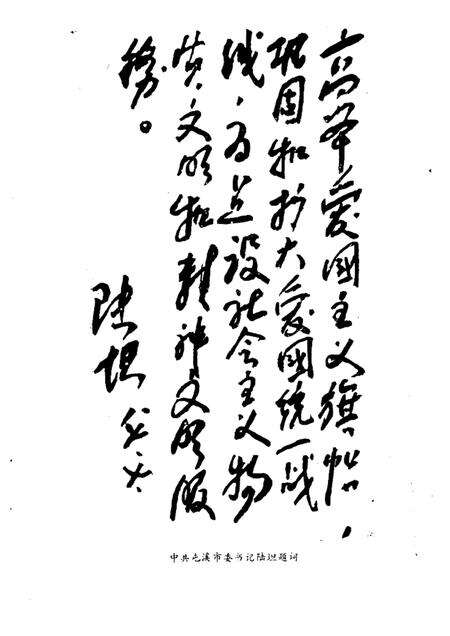 高举爱国主义旗帜，
巩固和扩大爱国统一战
线，为建设社会主义物
质文明和精神文明服
务。
陆坦
中共屯溪市委书记陆坦题词